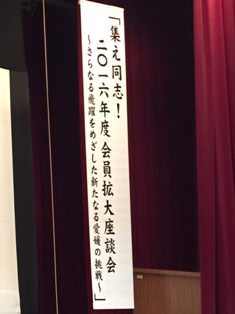 「集え同志！
二〇一六年度会員拡大座談会
～さらなる飛躍をめざした新たなる愛媛の挑戦～」